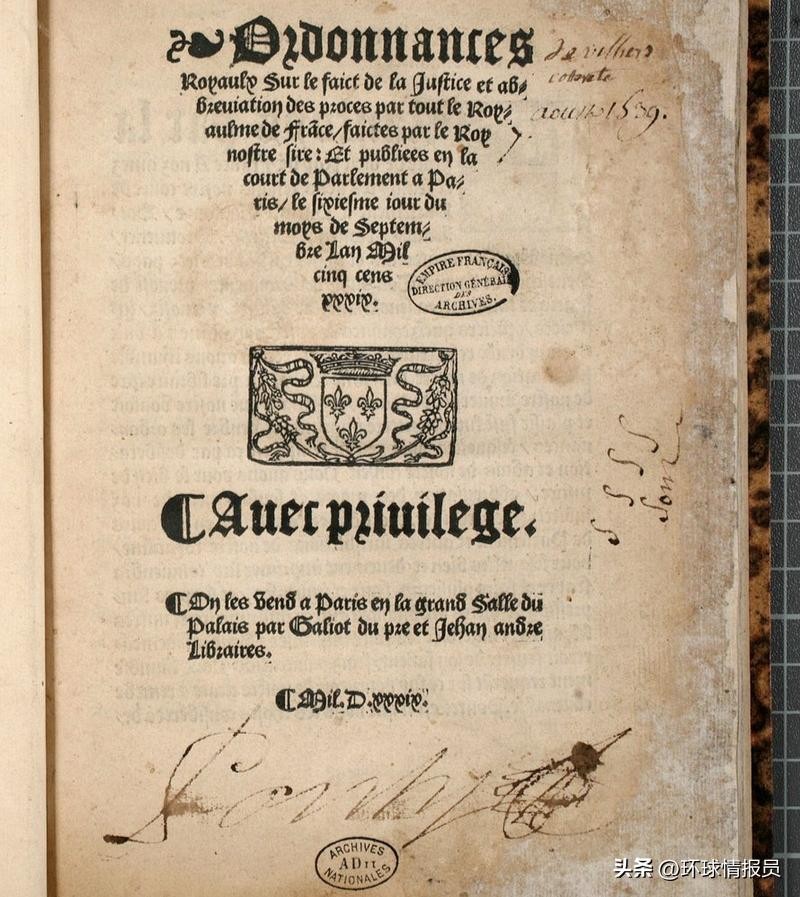 Ordonnances
Royaulx Sur le faict de la Justice et ab⸗
breuiation des proces par tout le Roy⸗
aulme de frãce/faictes par le Roy
nostre sire: Et publiees en la
court de Parlement a Pa⸗
ris/ le sixiesme iour du
moys de Septem⸗
bre Lan Mil
cinq cens
xxxix.
de villers
coterets
aoust 1539.
EMPIRE FRANÇAIS
DIRECTION GÉNÉRALE
DES
ARCHIVES.
¶Auec priuilege.
¶On les vend a Paris en la grand Salle du
Palais par Galiot du pre et Jehan andre
Libraires.
¶Mil.D.xxxix.
ARCHIVES
AD11
NATIONALES
头条 @环球情报员